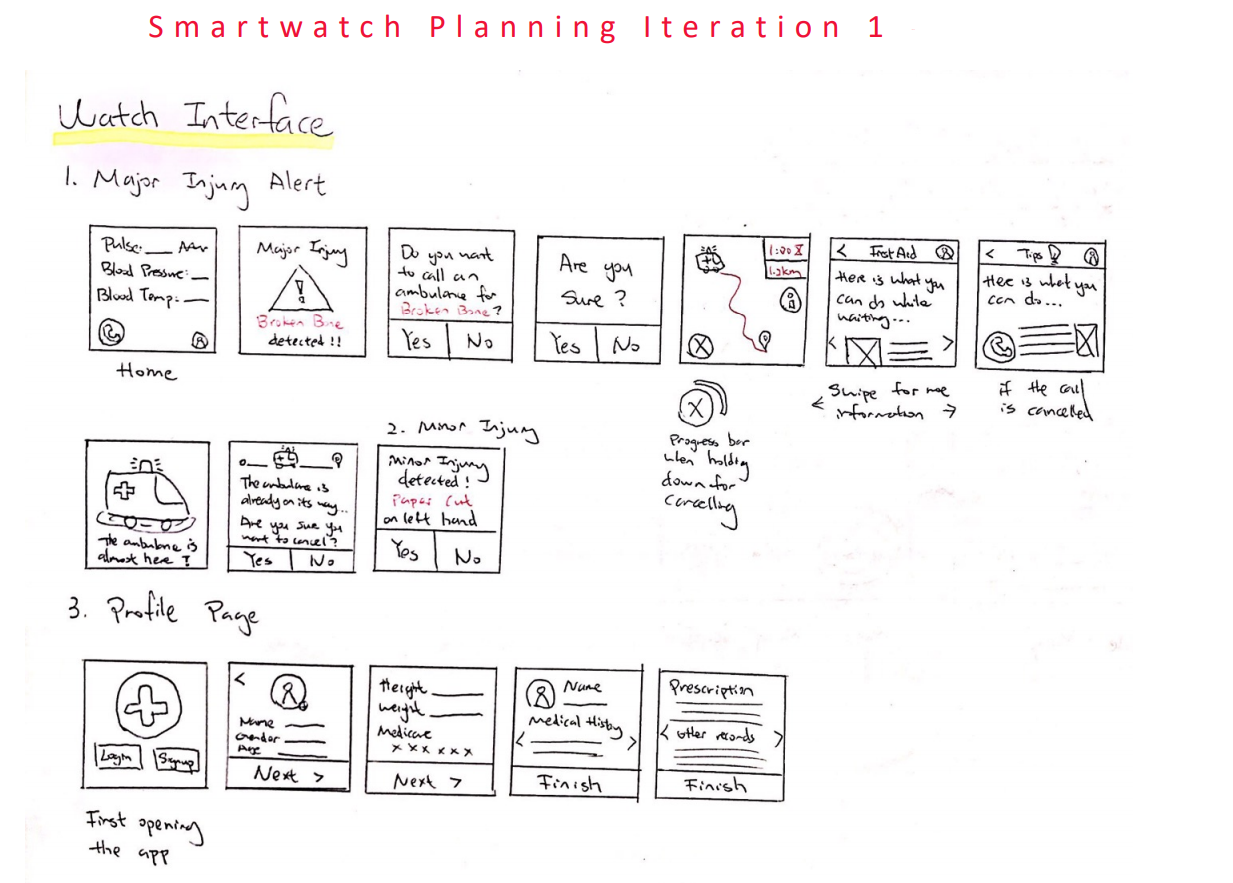 Smartwatch Planning Iteration 1
Watch Interface
1. Major Injury Alert
Pulse:
Blood Pressure:
Blood Temp:
Home
Major Injury
!
Broken Bone
detected !!
Do you want
to call an
ambulance for
Broken Bone?
Yes No
Are you
Sure ?
Yes No
1:00
1.2km
X
Progress bar
when holding
down for
cancelling
< First Aid
Here is what you
can do while
waiting...
< >
Swipe for more
← information →
< Tips
Here is what you
can do...
if the call
is cancelled
The ambulance is
almost here !
The ambulance is
already on its way...
Are you sure you
want to cancel?
Yes No
2. Minor Injury
Minor Injury
detected !
Paper Cut
on left hand
Yes No
3. Profile Page
Login Signup
First opening
the app
<
Name
Gender
Age
Next >
Height
Weight
Medicare
x x x x x x
Next >
Name
Medical History
< >
Finish
Prescription
< other records >
Finish